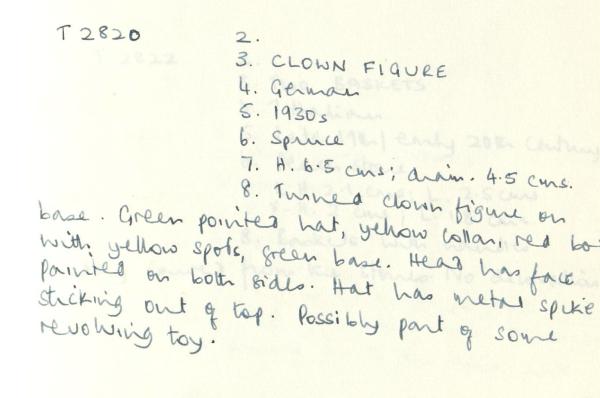 T 2820 2.
3. CLOWN FIGURE
4. German
5. 1930s
6. Spruce
7. H. 6.5 cms; diam. 4.5 cms.
8. Turned clown figure on
base. Green pointed hat, yellow collar, red bo
with yellow spots, green base. Head has face
painted on both sides. Hat has metal spike
sticking out of top. Possibly part of some
revolving toy.